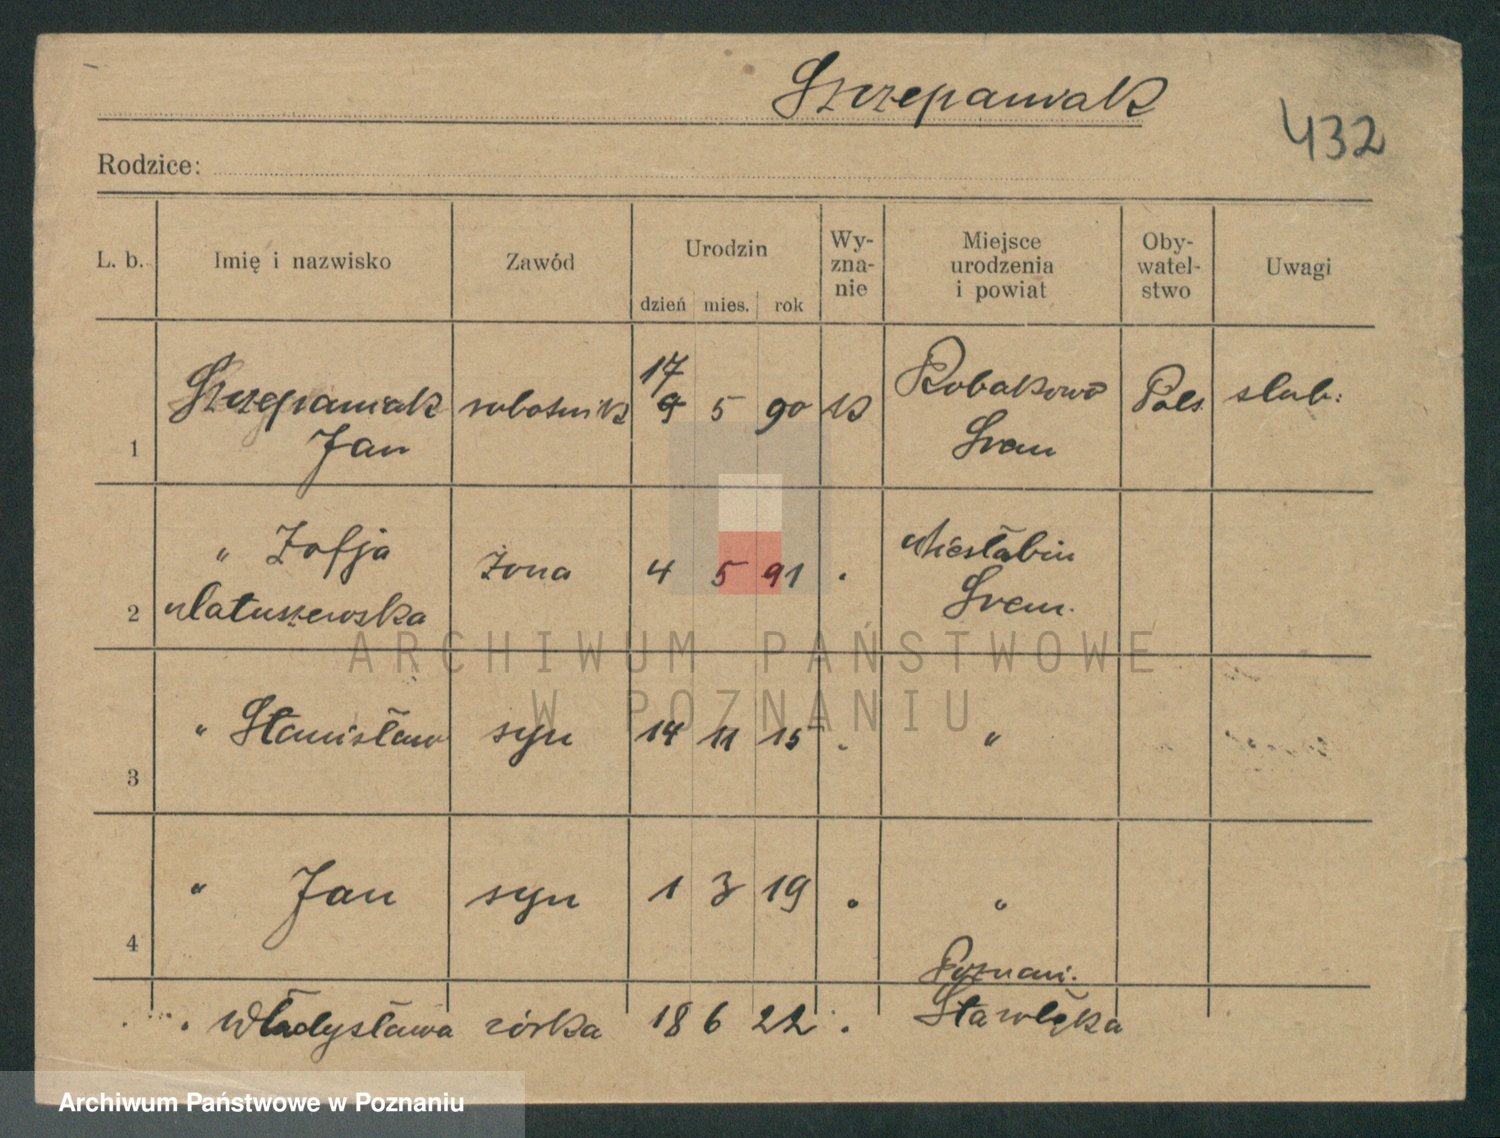 Szczepaniak
432
Rodzice:
L. b. Imię i nazwisko Zawód Urodzin dzień mies. rok Wy-zna-nie Miejsce urodzenia i powiat Oby-watel-stwo Uwagi
1 Szczepaniak robotnik 17 9 5 90 K Robakowo Pols. slub.
Jan Srem
2 " Zofja żona 4 5 91 . Niesłabin
Matuszewska Srem.
3 " Stanisław syn 14 11 15 . "
4 " Jan syn 1 3 19 " "
Poznań.
" Władysława córka 18 6 22 . Starołęka
ARCHIWUM PAŃSTWOWE
W POZNANIU
Archiwum Państwowe w Poznaniu